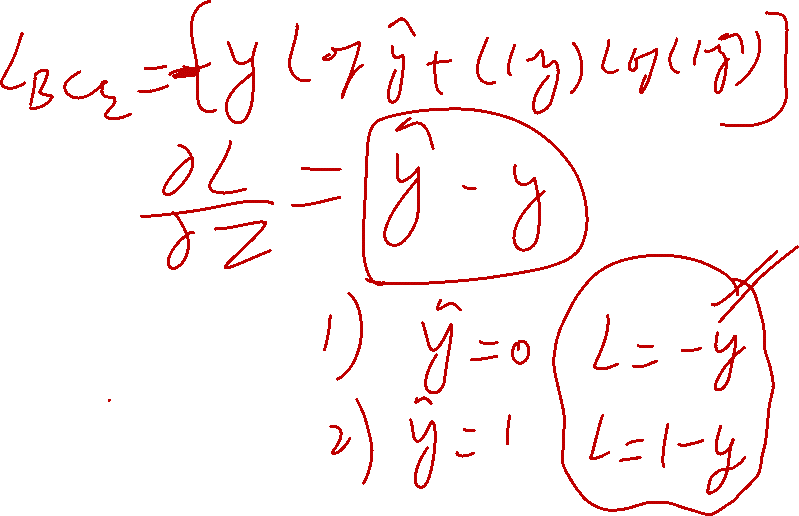 L_BCE = -[y log ŷ + (1-y) log(1-ŷ)]
∂L/∂Z = ŷ - y
1) ŷ = 0 L = -y
2) ŷ = 1 L = 1-y